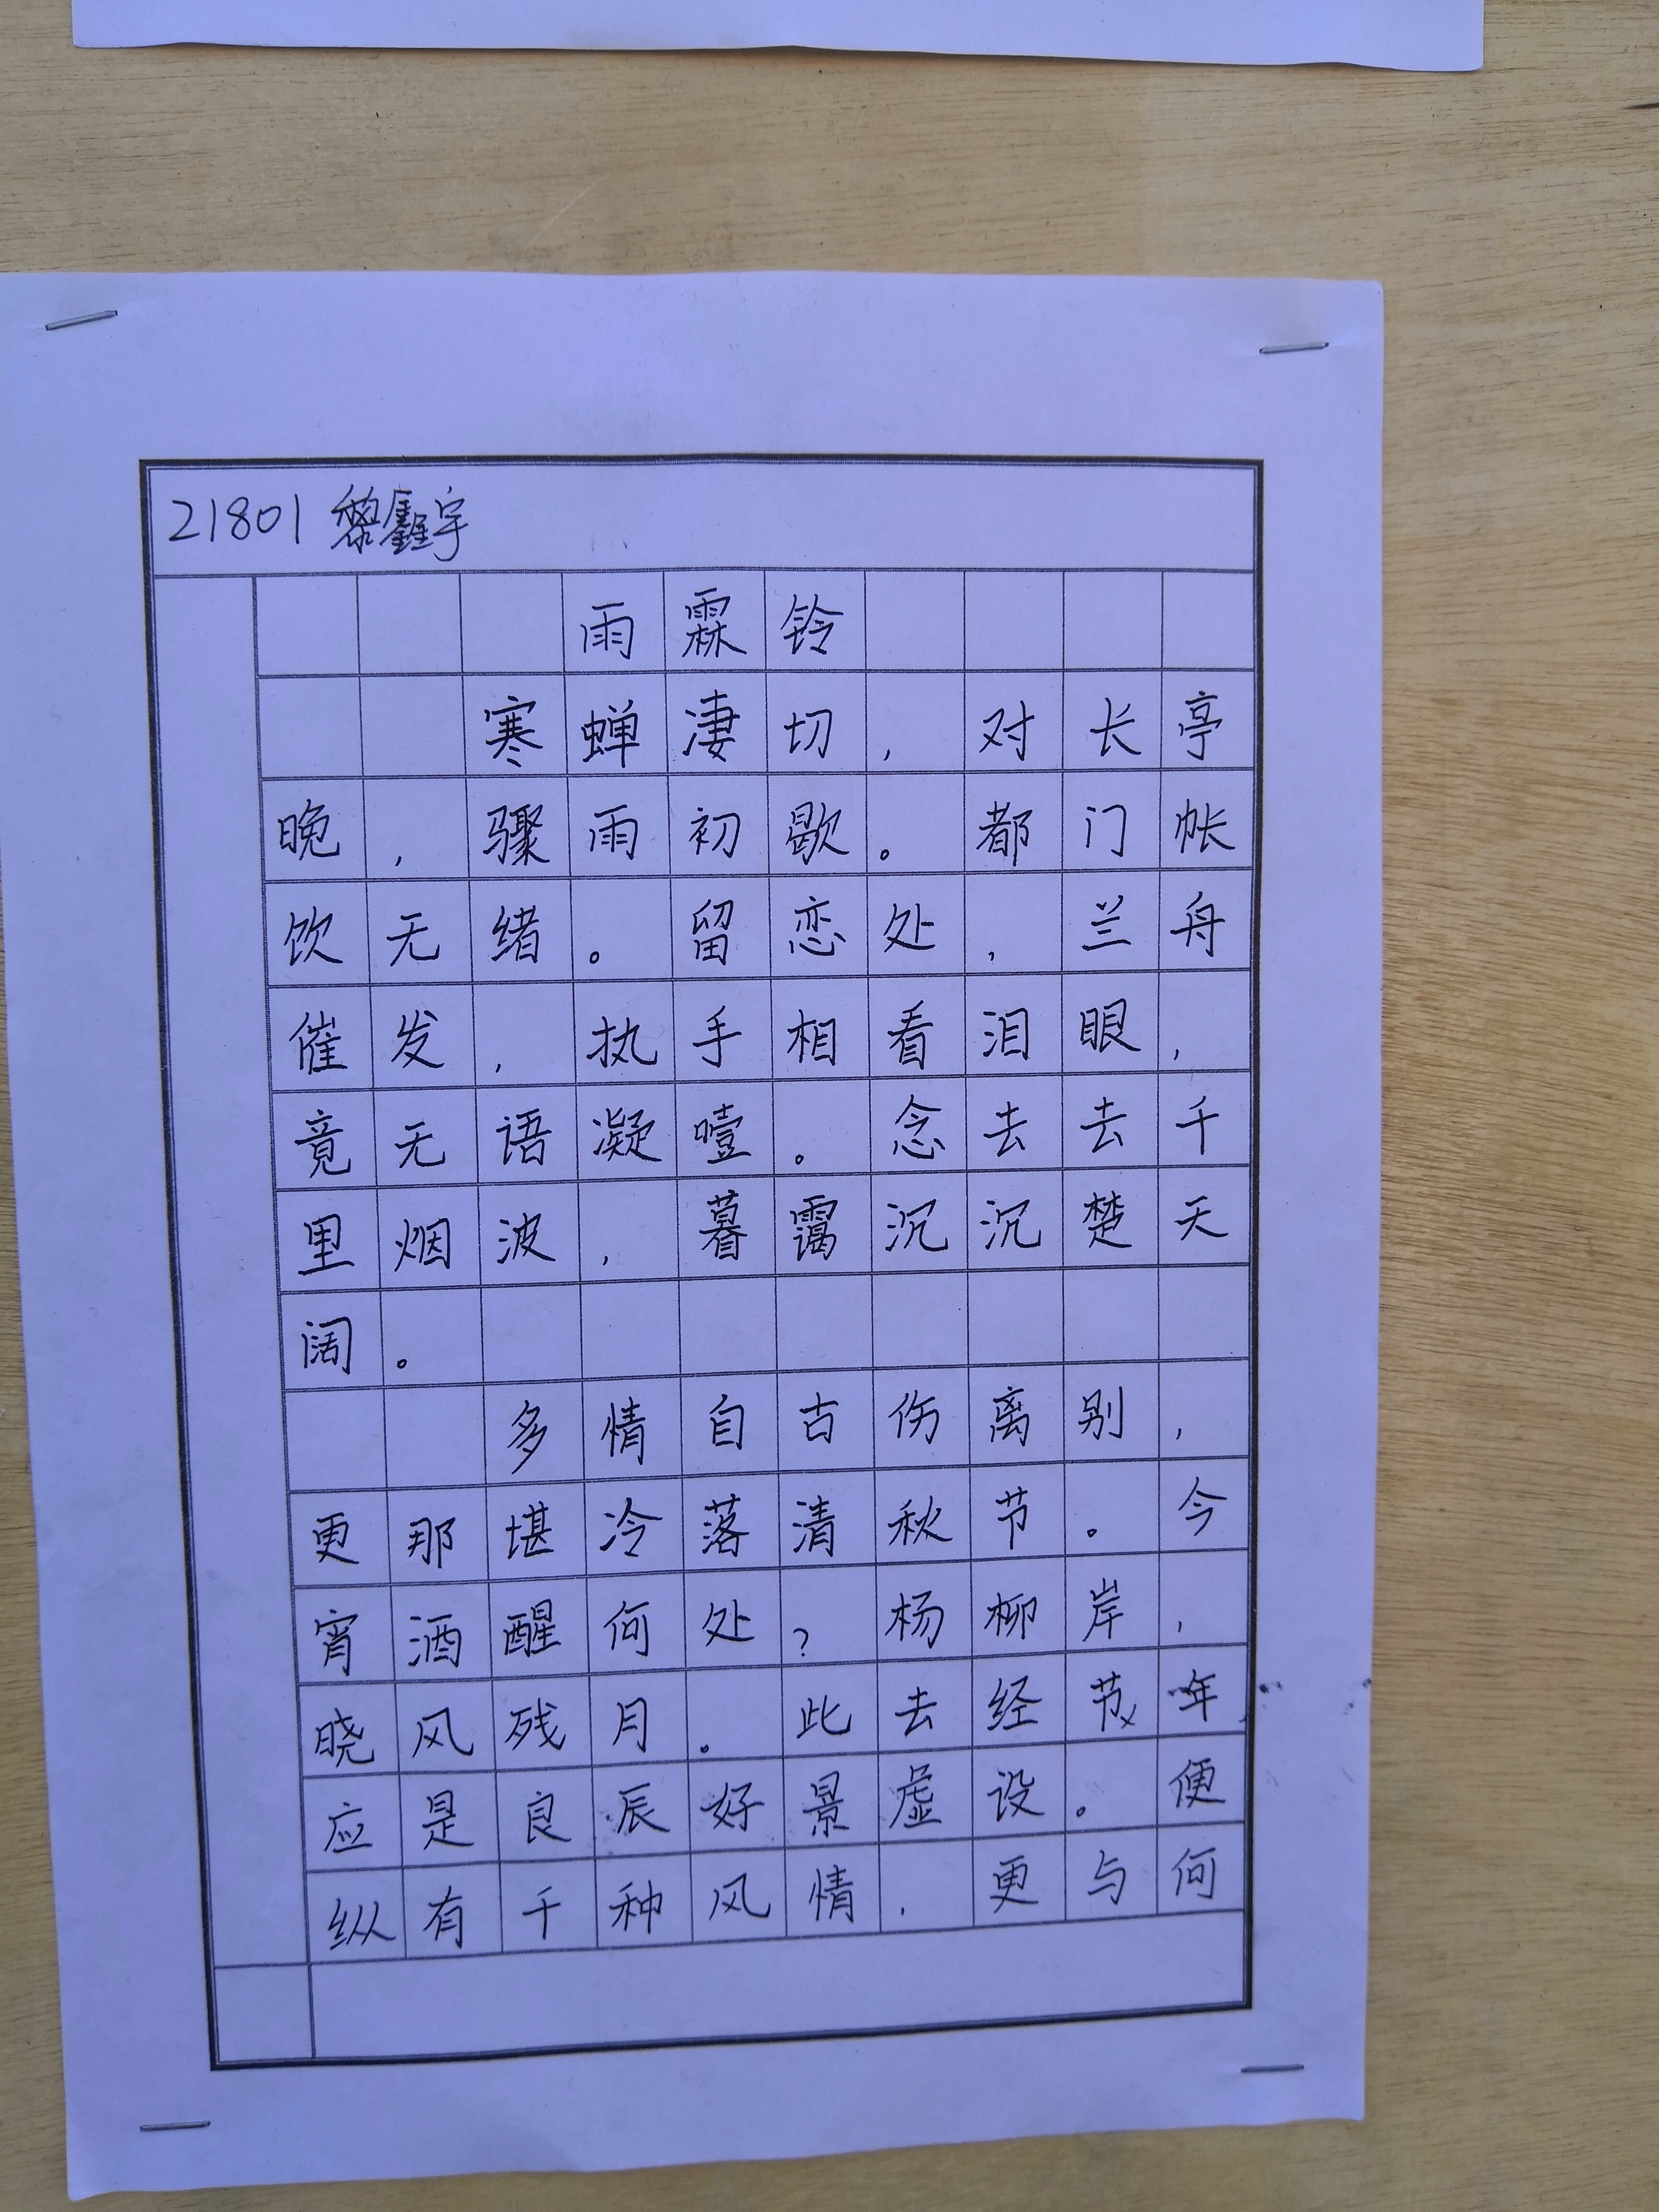 21801 黎鑫宇
雨霖铃
寒蝉凄切,对长亭
晚,骤雨初歇。都门帐
饮无绪。留恋处,兰舟
催发,执手相看泪眼,
竟无语凝噎。念去去千
里烟波,暮霭沉沉楚天
阔。
多情自古伤离别,
更那堪冷落清秋节。今
宵酒醒何处?杨柳岸,
晓风残月。此去经节年
应是良辰好景虚设。便
纵有千种风情,更与何